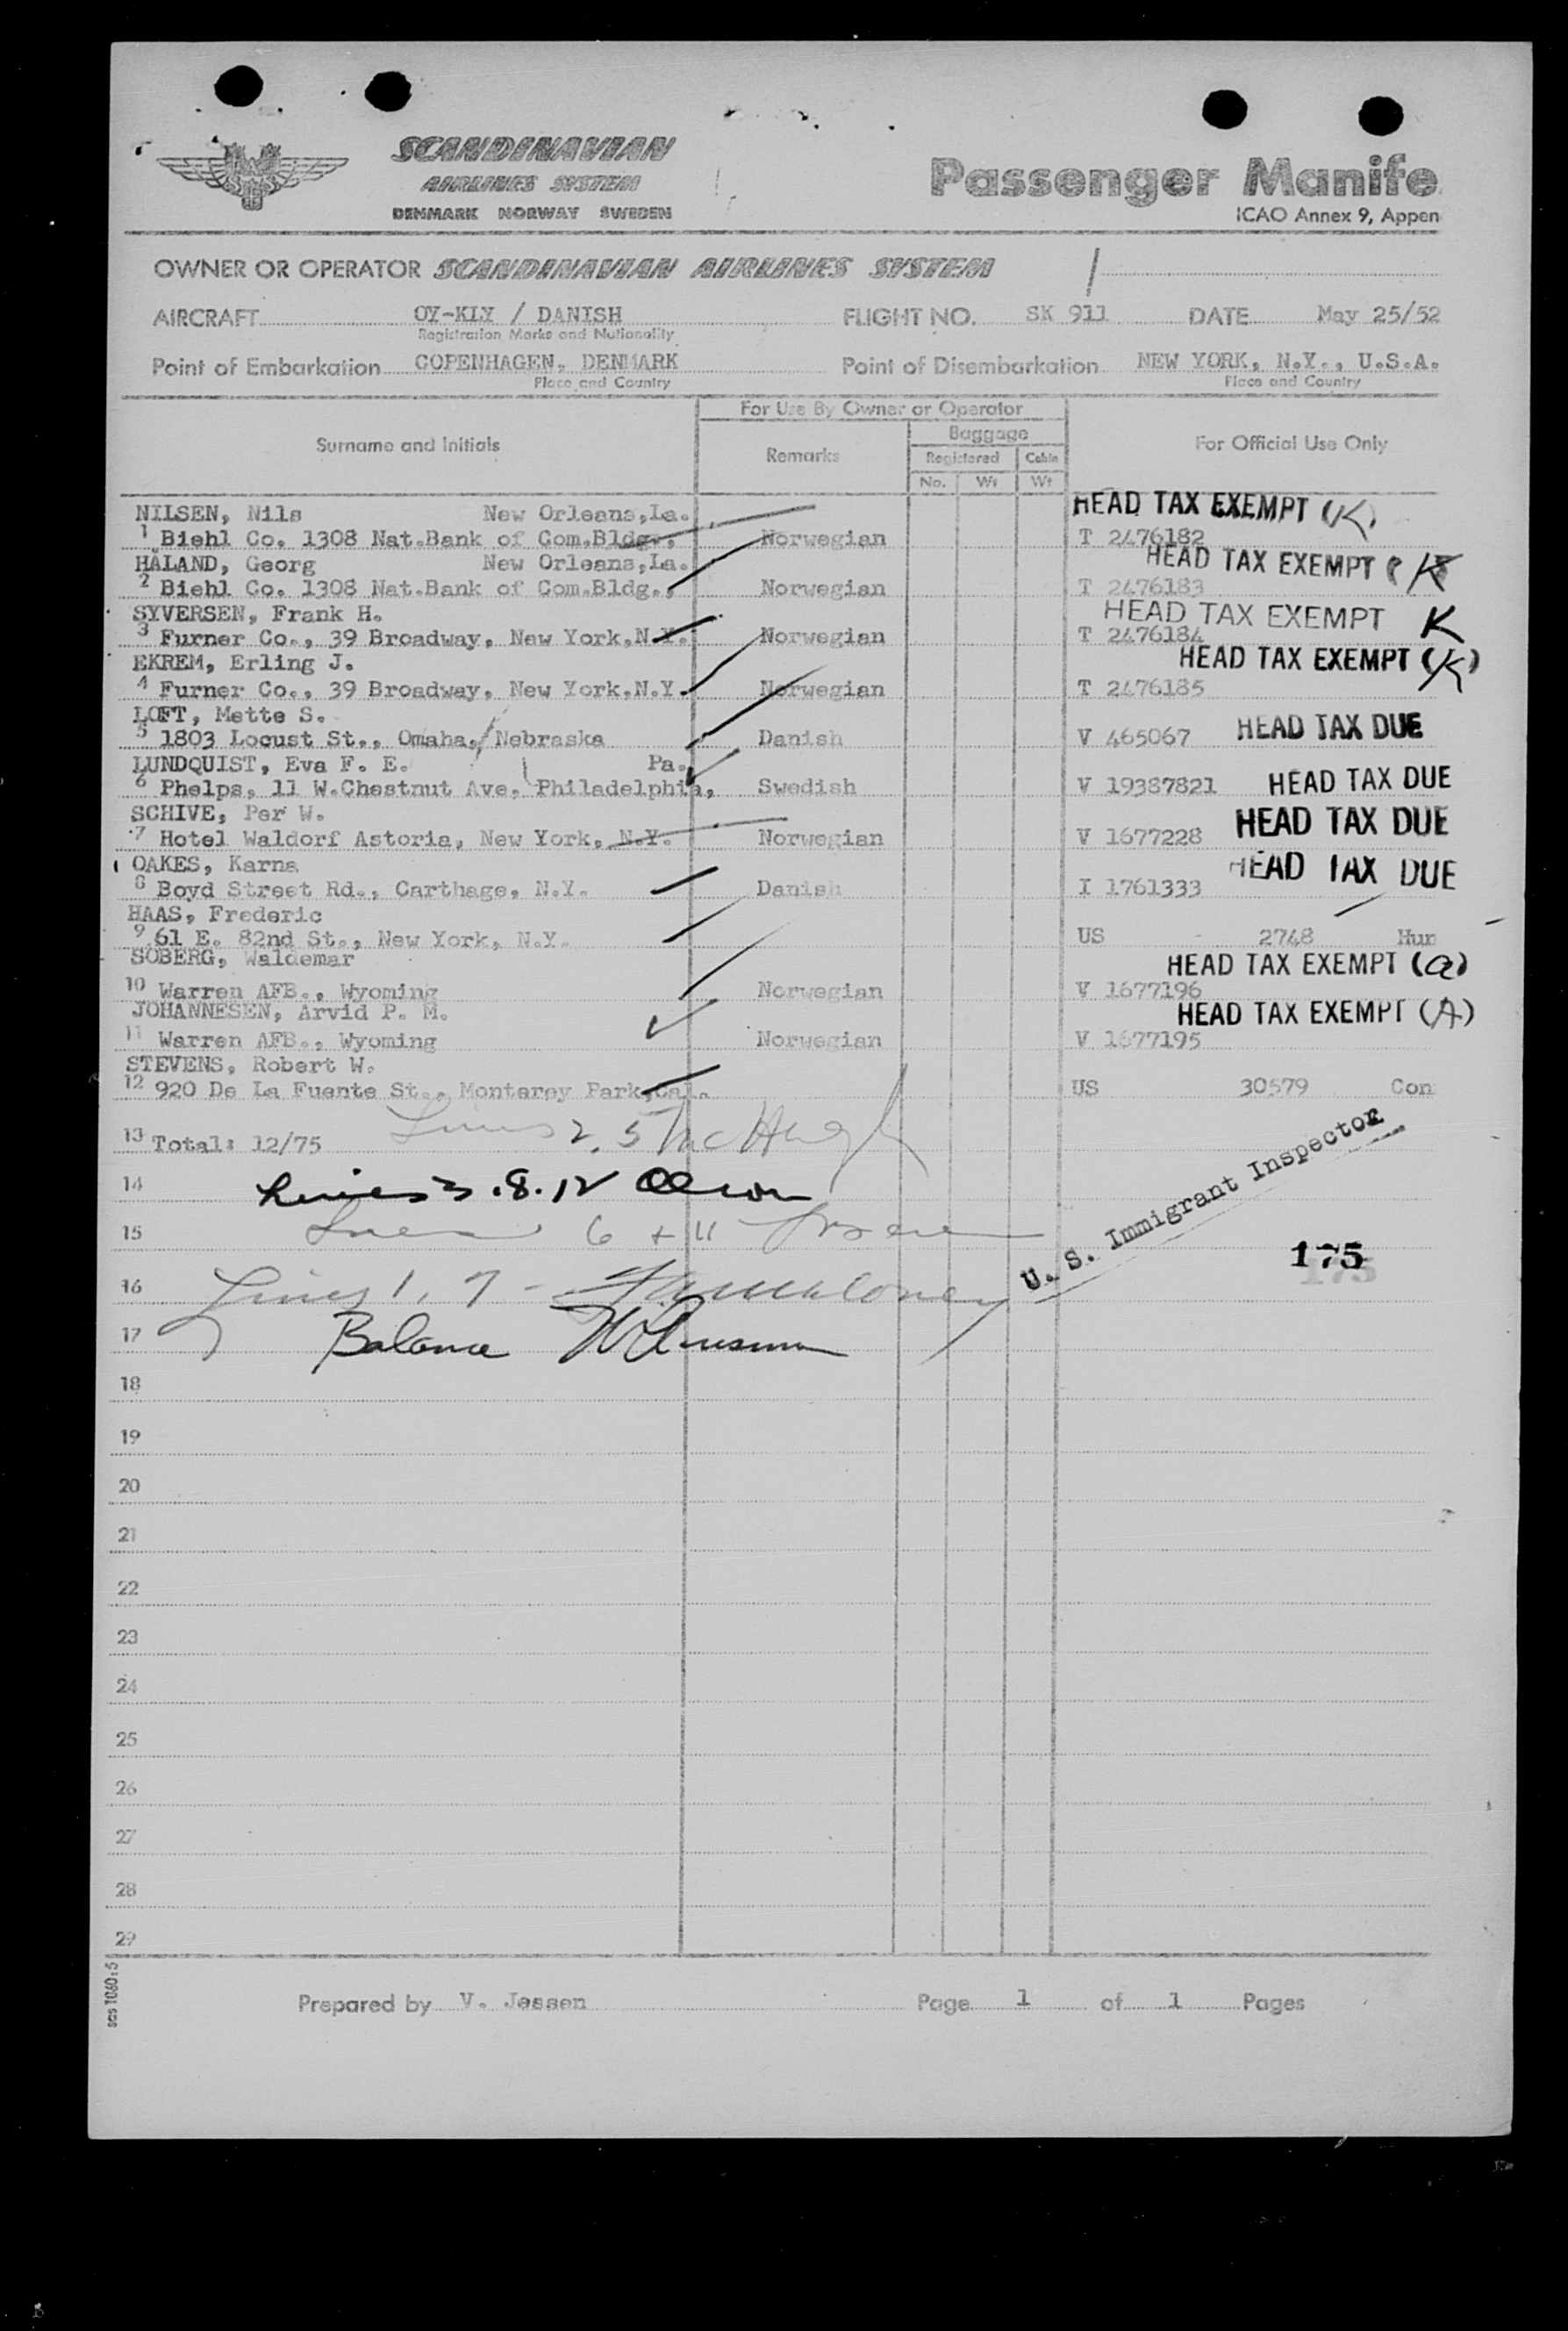 SCANDINAVIAN
AIRLINES SYSTEM
DENMARK NORWAY SWEDEN
Passenger Manife
ICAO Annex 9, Appen
OWNER OR OPERATOR SCANDINAVIAN AIRLINES SYSTEM
AIRCRAFT OY-KLY / DANISH FLIGHT NO. SK 911 DATE May 25/52
Registration Marks and Nationality
Point of Embarkation COPENHAGEN, DENMARK Point of Disembarkation NEW YORK, N.Y., U.S.A.
Place and Country Place and Country
For Use By Owner or Operator
Surname and Initials Remarks Baggage For Official Use Only
Registered Cabin
No. Wt Wt
NILSEN, Nils New Orleans,La. HEAD TAX EXEMPT (K)
1 Biehl Co. 1308 Nat.Bank of Com.Bldg., Norwegian T 2476182
HÅLAND, Georg New Orleans,La. HEAD TAX EXEMPT (K
2 Biehl Co. 1308 Nat.Bank of Com.Bldg., Norwegian T 2476183
SYVERSEN, Frank H. HEAD TAX EXEMPT K
3 Furner Co., 39 Broadway, New York,N.Y. Norwegian T 2476184
EKREM, Erling J. HEAD TAX EXEMPT (K)
4 Furner Co., 39 Broadway, New York,N.Y. Norwegian T 2476185
LOFT, Mette S.
5 1803 Locust St., Omaha, Nebraska Danish V 465067 HEAD TAX DUE
LUNDQUIST, Eva F. E. Pa.
6 Phelps, 11 W.Chestnut Ave, Philadelphia, Swedish V 19387821 HEAD TAX DUE
SCHIVE, Per W.
7 Hotel Waldorf Astoria, New York, N.Y. Norwegian V 1677228 HEAD TAX DUE
OAKES, Karna
8 Boyd Street Rd., Carthage, N.Y. Danish I 1761333 HEAD TAX DUE
HAAS, Frederic
9 61 E. 82nd St., New York, N.Y. US - 2748 Hun
SOBERG, Waldemar HEAD TAX EXEMPT (a)
10 Warren AFB., Wyoming Norwegian V 1677196
JOHANNESEN, Arvid P. M. HEAD TAX EXEMPT (A)
11 Warren AFB., Wyoming Norwegian V 1677195
STEVENS, Robert W.
12 920 De La Fuente St., Monterey Park,Cal. US 30579 Con
13 Total: 12/75 Lines 2, 5 McHugh
14 Lines 3.8.12 Olson
15 Lines 6 + 11
U. S. Immigrant Inspector
175
16 Lines 1, 7 -
17 Balance
18
19
20
21
22
23
24
25
26
27
28
29
sas 1060:5
Prepared by V. Jessen Page 1 of 1 Pages